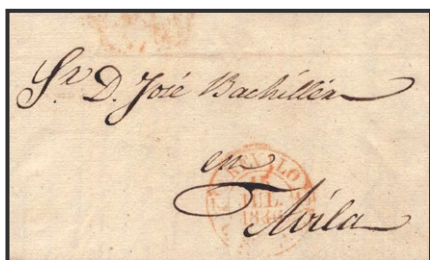 Sr. D. José Bachiller
en
Avila
JUL.